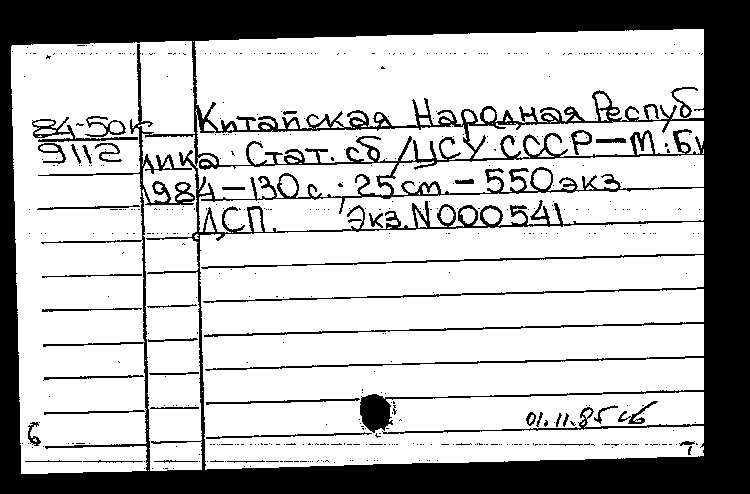 84-50к Китайская Народная Респуб-
9112 лика: Стат. сб /ЦСУ СССР — М.: Би
1984 — 130 с.; 25 см. — 550 экз
ДСП. Экз. N 000541.
01.11.85
6